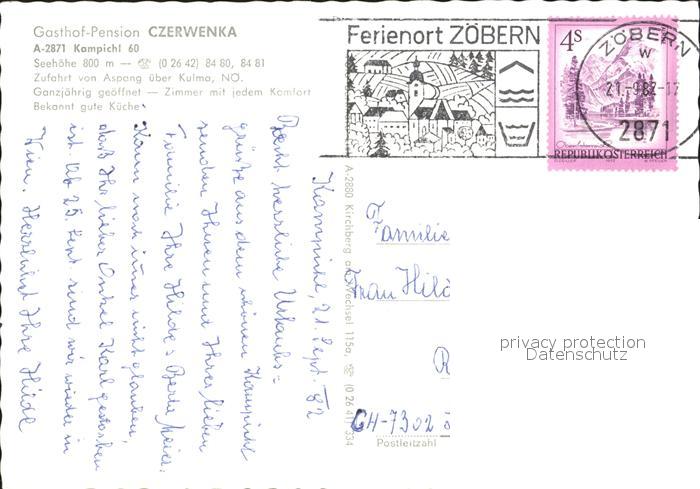 Gasthof-Pension CZERWENKA
A-2871 Kampichl 60
Seehöhe 800 m — ☏ (0 26 42) 84 80, 84 81
Zufahrt von Aspang über Kulma, NÖ.
Ganzjährig geöffnet — Zimmer mit jedem Komfort
Bekannt gute Küche
Ferienort ZÖBERN
4s
REPUBLIK ÖSTERREICH
ZÖBERN
w
21.-9.82-17
2871
Kampichl, 21. Sept. 82
Recht herzliche Urlaubs-
grüße aus dem schönen Kampichl
senden Ihnen und Ihrer lieben
Familie Ihre Hilde &
Kann noch immer nicht glauben,
daß Ihr lieber Onkel Karl gestorben
ist. Ab 25. Sept. sind wir wieder in
Wien. Herzlichst Ihre Hilde
A-2880 Kirchberg am Wechsel 115a, ☏ (0 26 41)
Familie
Frau Hild
R
CH-7302
Postleitzahl
privacy protection
Datenschutz